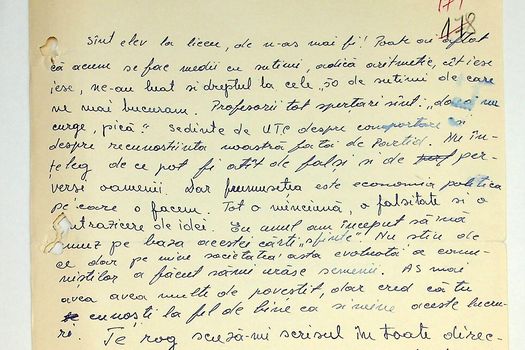 178
Sînt elev la liceu, de n-as mai fi! Poate ai aflat
că acum se fac medii cu sutimi, adică aritmetic, cît iese
iese, ne-au luat si dreptul la cele "50 de sutimi de care
ne mai bucuram. Profesorii tot spertari sînt: "dacă nu
curge, pică". Sedinte de UTC despre comportare si
despre recunostinta noastră fată de Partid. Nu în-
teleg de ce pot fi atît de falsi si de per-
versi oamenii. Dar frumusetea este economia politică
pe care o facem. Tot o minciună, o falsitate si o
ontrazicere de idei. Eu unul am început să mă
muz pe baza acestei cărti "sfinte". Nu stiu de
ce dar pe mine societatea asta evoluată a comu-
nistilor a făcut să-mi urăsc semenii. As mai
avea avea multe de povestit, dar cred că tu
cunosti la fel de bine ca si mine aceste lucru-
ri. Te rog scuză-mi scrisul în toate direc-